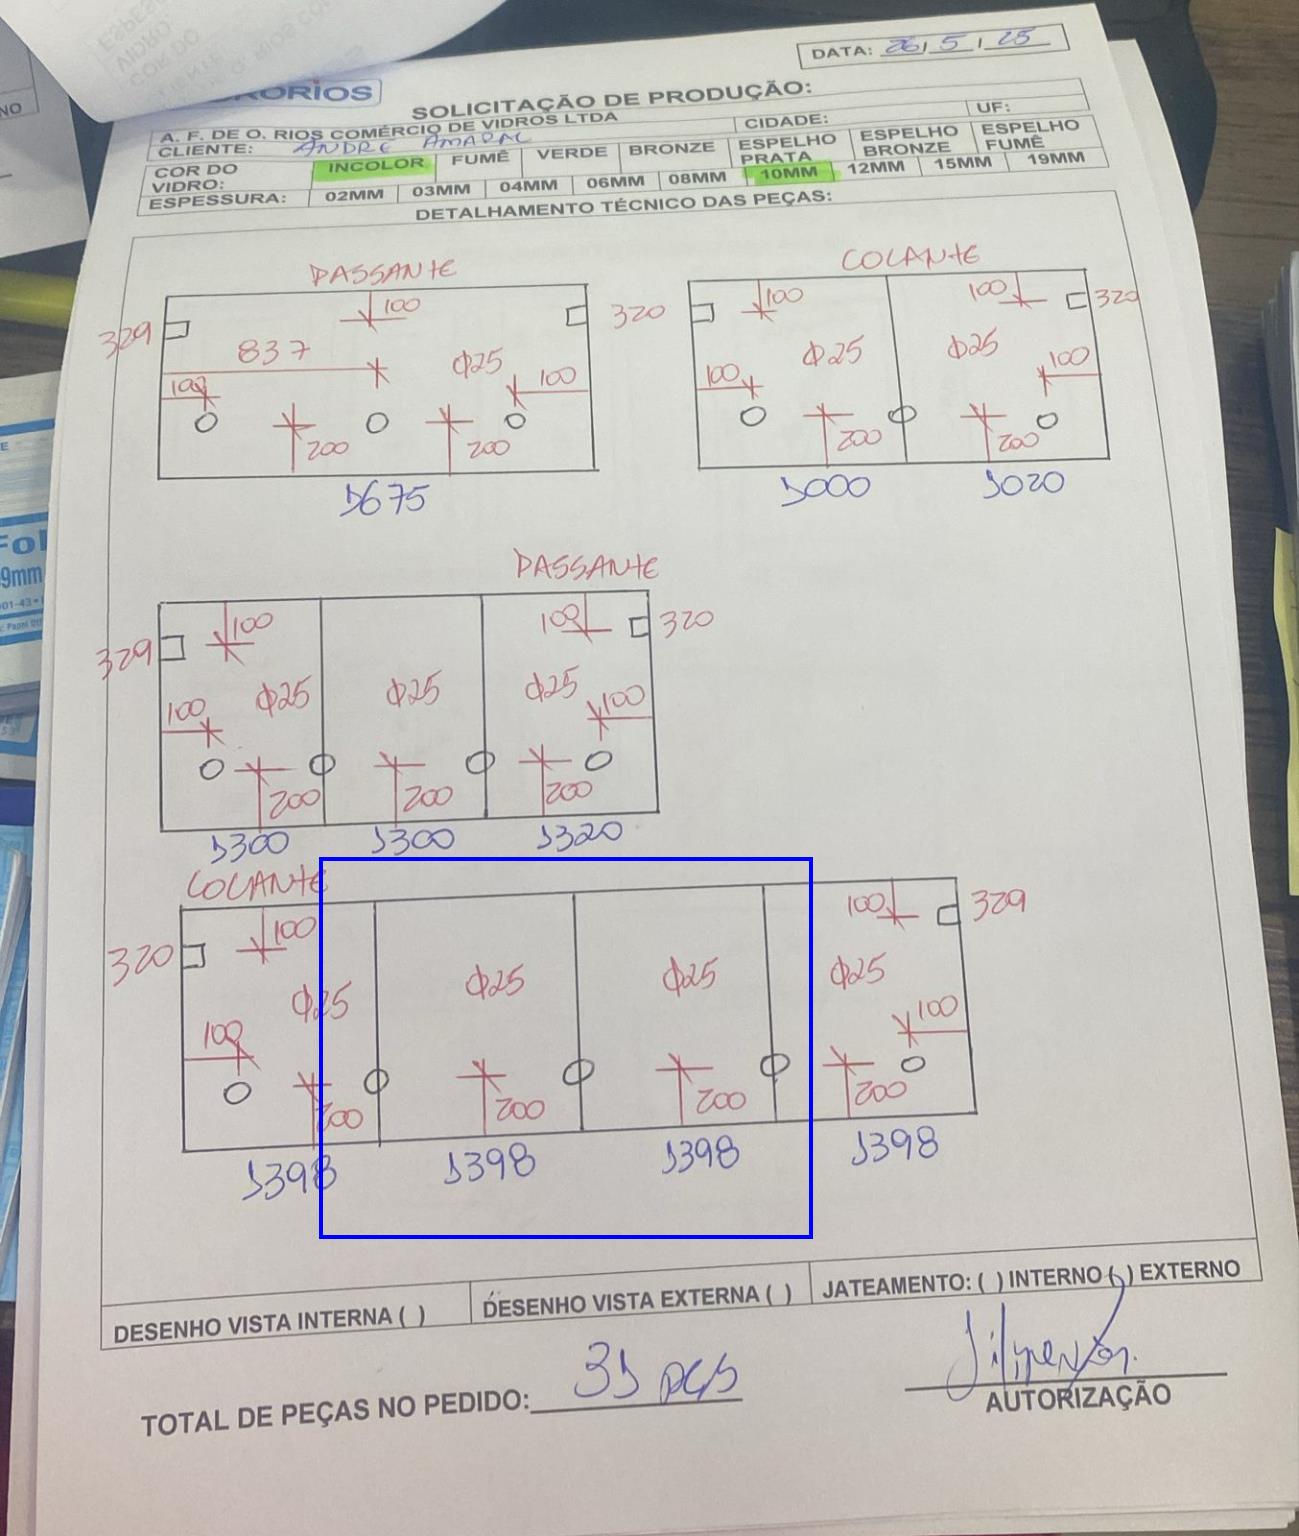 DATA: 26/5/25
SOLICITAÇÃO DE PRODUÇÃO:
A. F. DE O. RIOS COMÉRCIO DE VIDROS LTDA
CIDADE: UF:
CLIENTE: ANDRE AMARAL
COR DO VIDRO: INCOLOR FUMÊ VERDE BRONZE ESPELHO PRATA ESPELHO BRONZE ESPELHO FUMÊ
ESPESSURA: 02MM 03MM 04MM 06MM 08MM 10MM 12MM 15MM 19MM
DETALHAMENTO TÉCNICO DAS PEÇAS:
PASSANTE COLANTE
100 100 100
329 320 320
837 Φ25 Φ25 Φ25
100 100 100 100
200 200 200 200
1675 1000 1020
PASSANTE
100 100
329 320
Φ25 Φ25 Φ25
100 100
200 200 200
1300 1300 1320
COLANTE
100 100
320 329
Φ25 Φ25 Φ25 Φ25
100 100
200 200 200 200
1398 1398 1398 1398
DESENHO VISTA INTERNA ( ) DESENHO VISTA EXTERNA ( ) JATEAMENTO: ( ) INTERNO ( ) EXTERNO
TOTAL DE PEÇAS NO PEDIDO: 31 pçs
AUTORIZAÇÃO